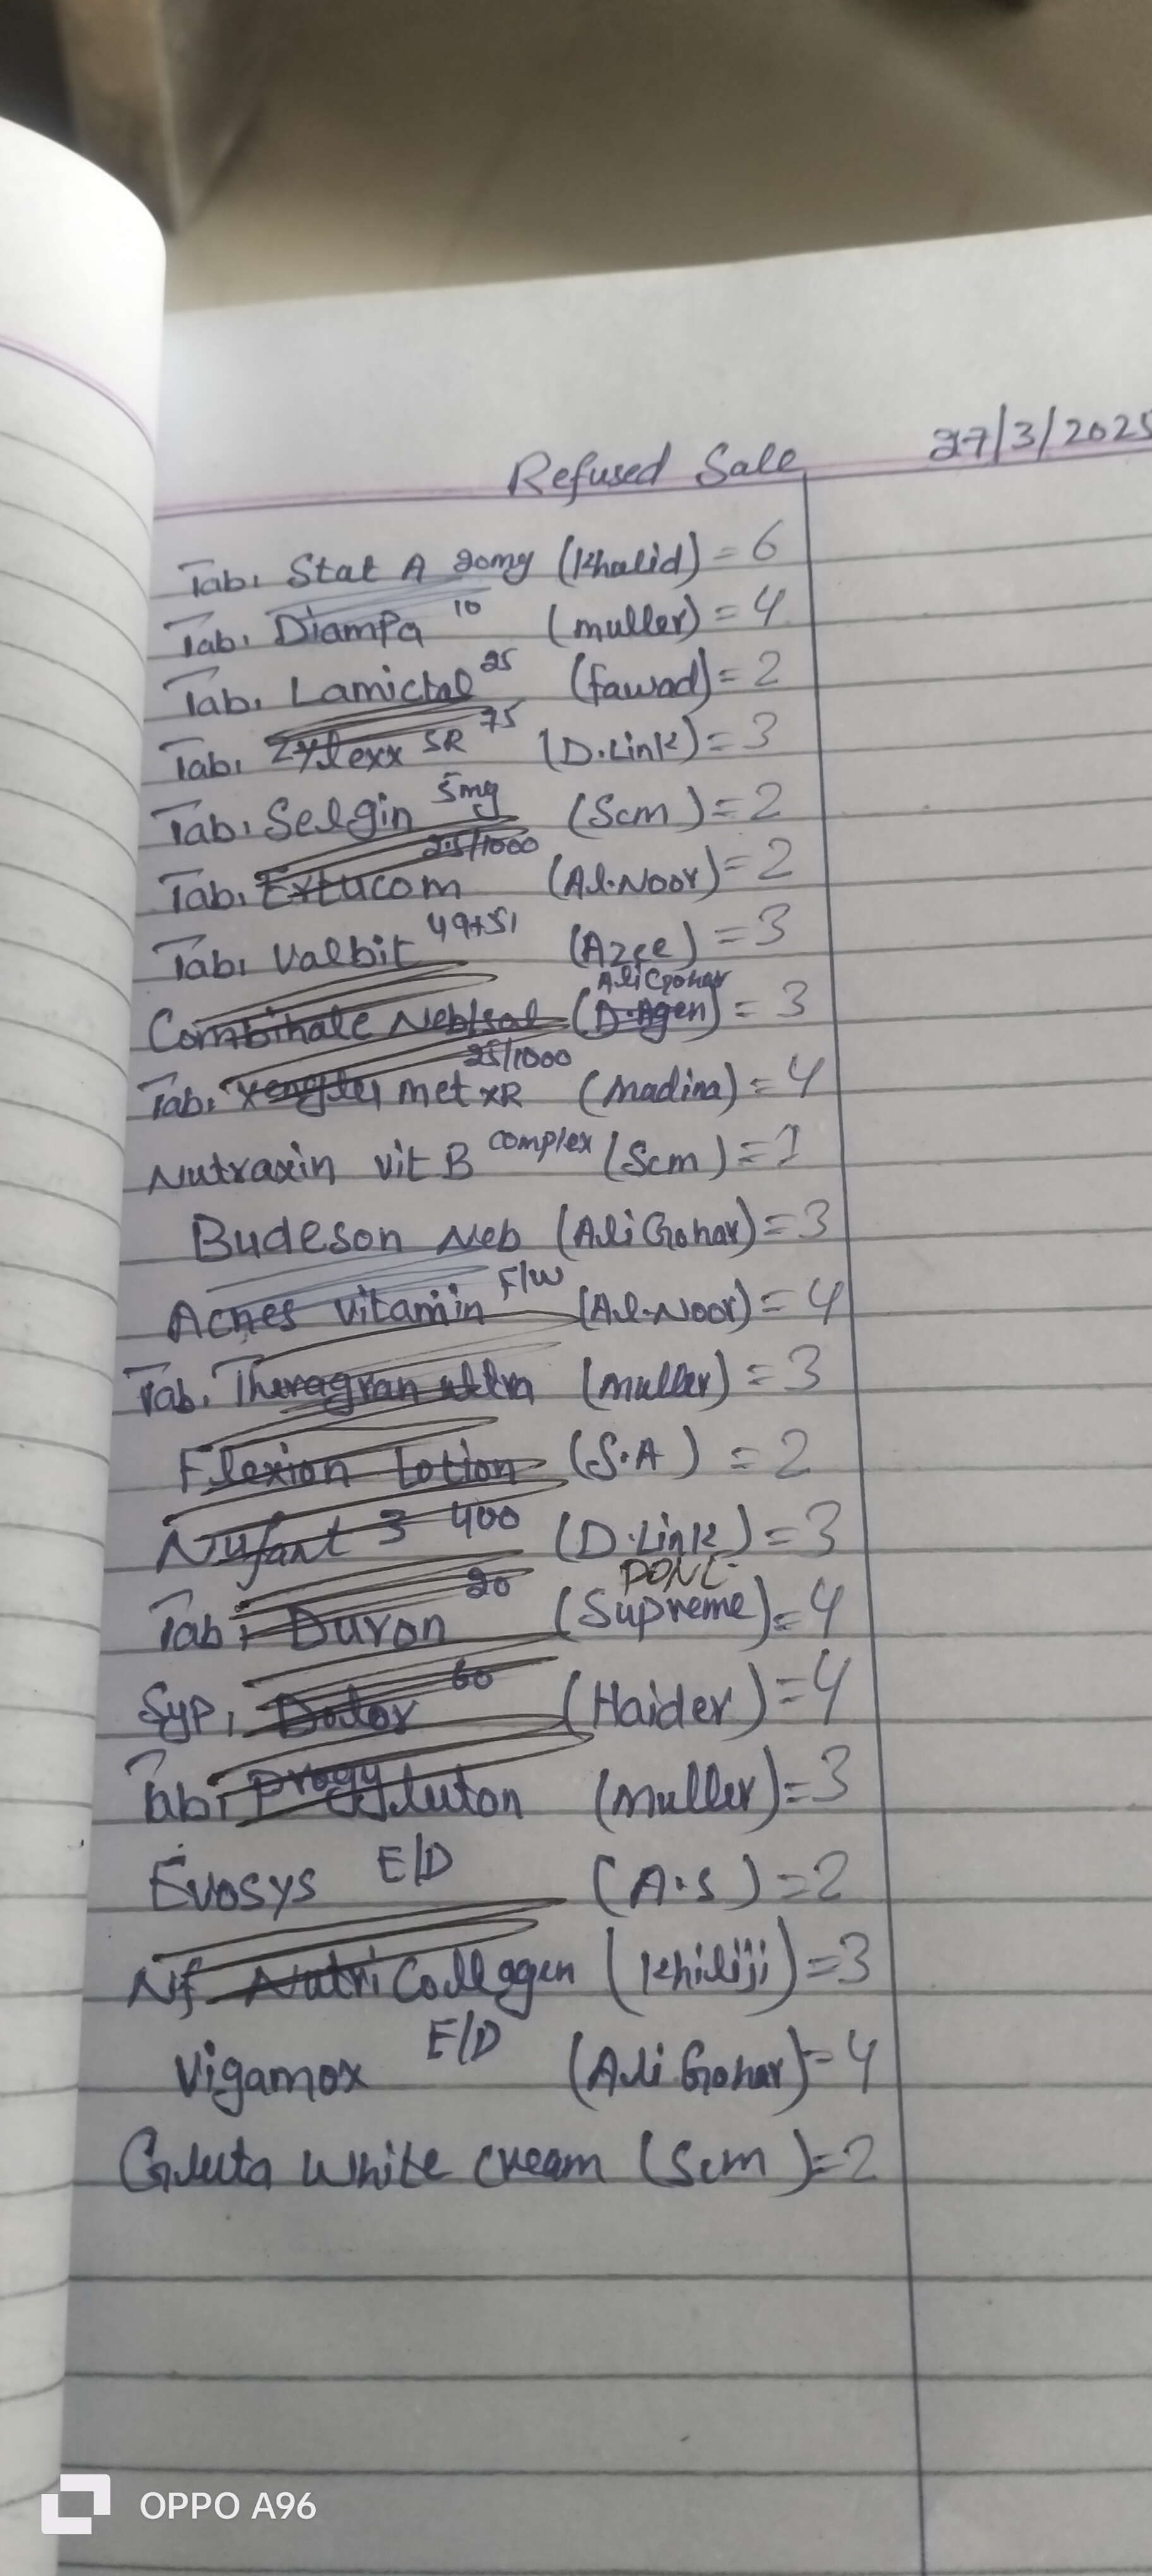 Refused Sale 27/3/2025
Tab. Stat A 20mg (Khalid) = 6
Tab. Diampa 10 (muller) = 4
Tab. Lamictal 25 (fawad) = 2
Tab. Zylexx SR 75 (D.Link) = 3
Tab. Selgin 5mg (Scm) = 2
Tab. Extucom 2.5/1000 (Al.Noor) = 2
Tab. Valbit 49+51 (Azee) = 3
Ali Gohar
Combinate Neb/sol (D.Agen) = 3
Tab. met XR 25/1000 (Madina) = 4
Nutraxin vit B complex (Scm) = 1
Budeson Neb (Ali Gohar) = 3
Acnes vitamin F/W (Al-Noor) = 4
Tab. Theragran ultra (muller) = 3
Flexion Lotion (S.A) = 2
Nufant 3 400 (D.Link) = 3
DONE
Tab. Duron 20 (Supreme) = 4
Syp. 60 (Haider) = 4
Tab. Progyluton (muller) = 3
Evosys E/D (A.S) = 2
Nf Nutri Collagen (Khiliji) = 3
Vigamox E/D (Ali Gohar) = 4
Gluta White cream (Scm) = 2
OPPO A96